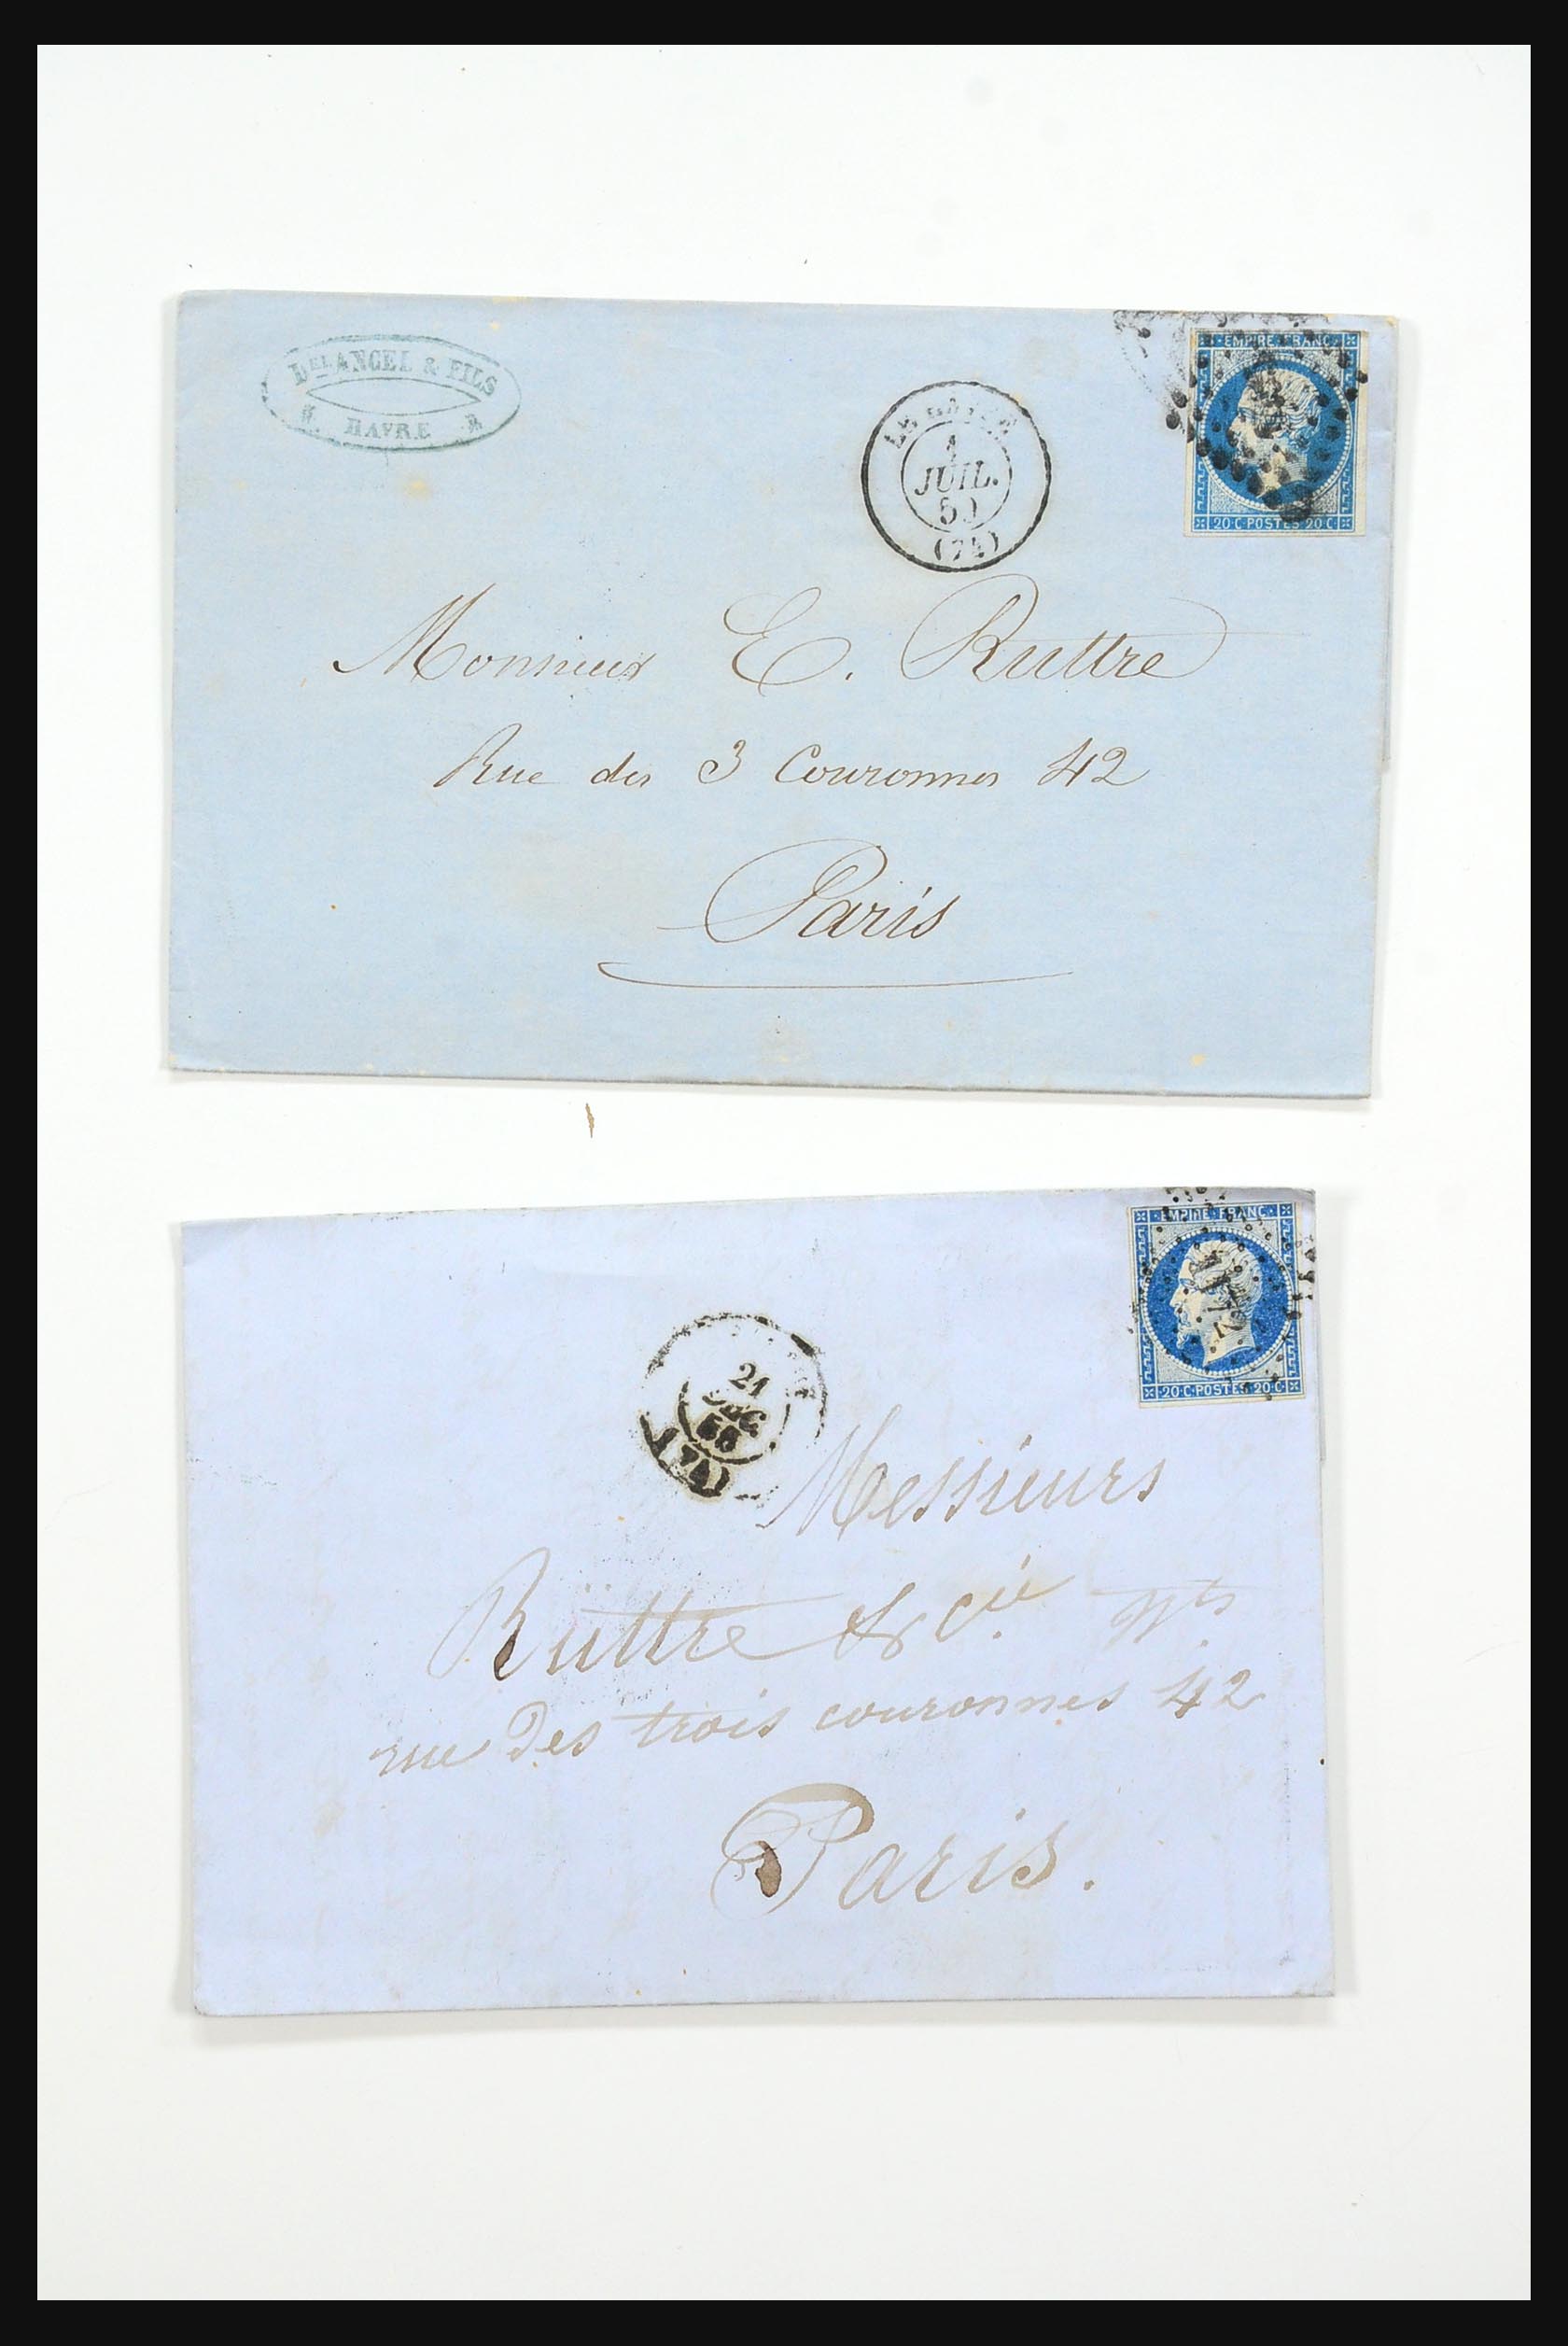 DEL ANGEL & FILS
HAVRE
EMPIRE FRANC.
LE HAVRE
1
JUIL.
(74)
20 C. POSTES 20 C.
Monsieur E. Ruttre
Rue des 3 Couronnes 42
Paris
EMPIRE FRANC.
20 C. POSTES 20 C.
21
DEC.
Messieurs
Rüttre & Cie. Nts.
rue des trois couronnes 42
Paris.